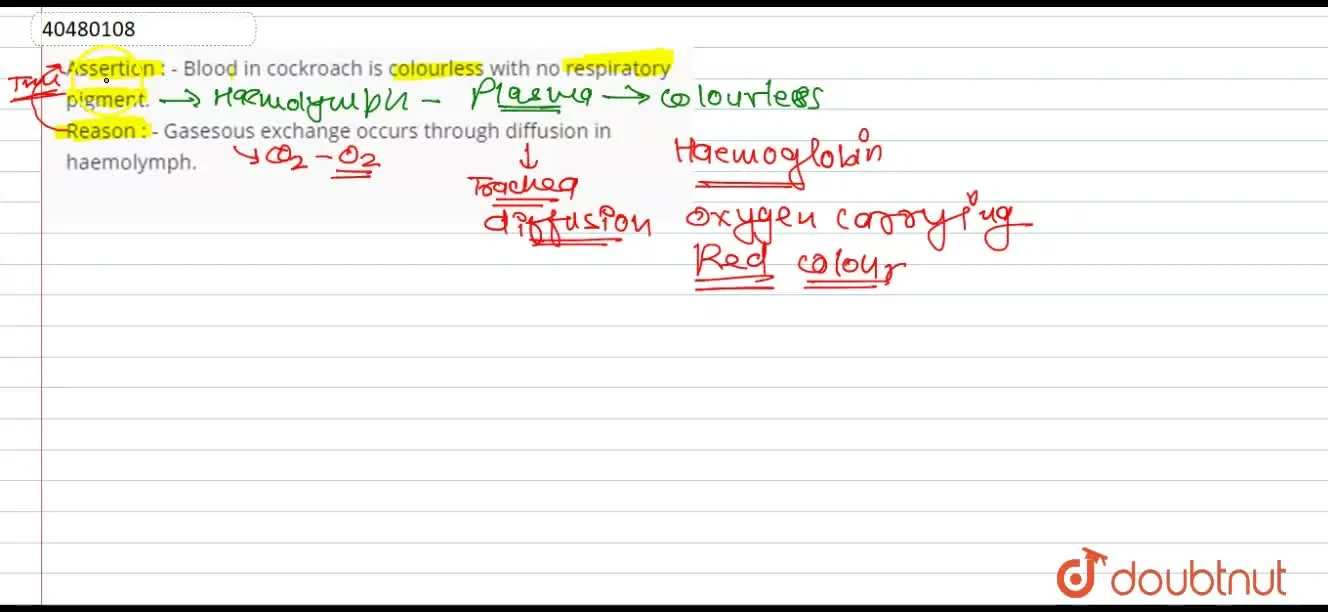 40480108
Assertion : - Blood in cockroach is colourless with no respiratory
pigment. → Haemolymph - Plasma → colourless
Reason : - Gasesous exchange occurs through diffusion in
haemolymph.
CO2 - O2
Trachea
diffusion
Haemoglobin
oxygen carrying
Red colour
doubtnut